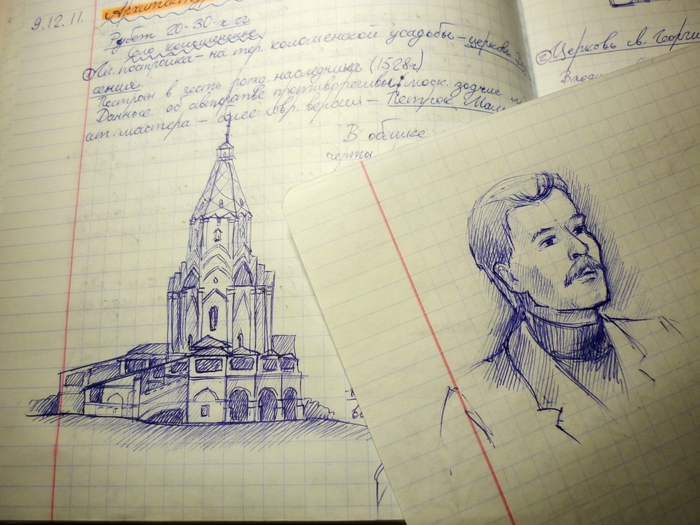 9.12.11.
Архитект
Рубеж 20-30-х гг
Лет. постройка - на тер. коломенской усадьбы - церковь Воз
сения
Построен в честь рожд. наследника (1528г)
Данные об авторстве противоречивы: моск. зодчие и
мастера - более вер. версия - Петрок Мал
В облике
черты
Церковь св. Георги